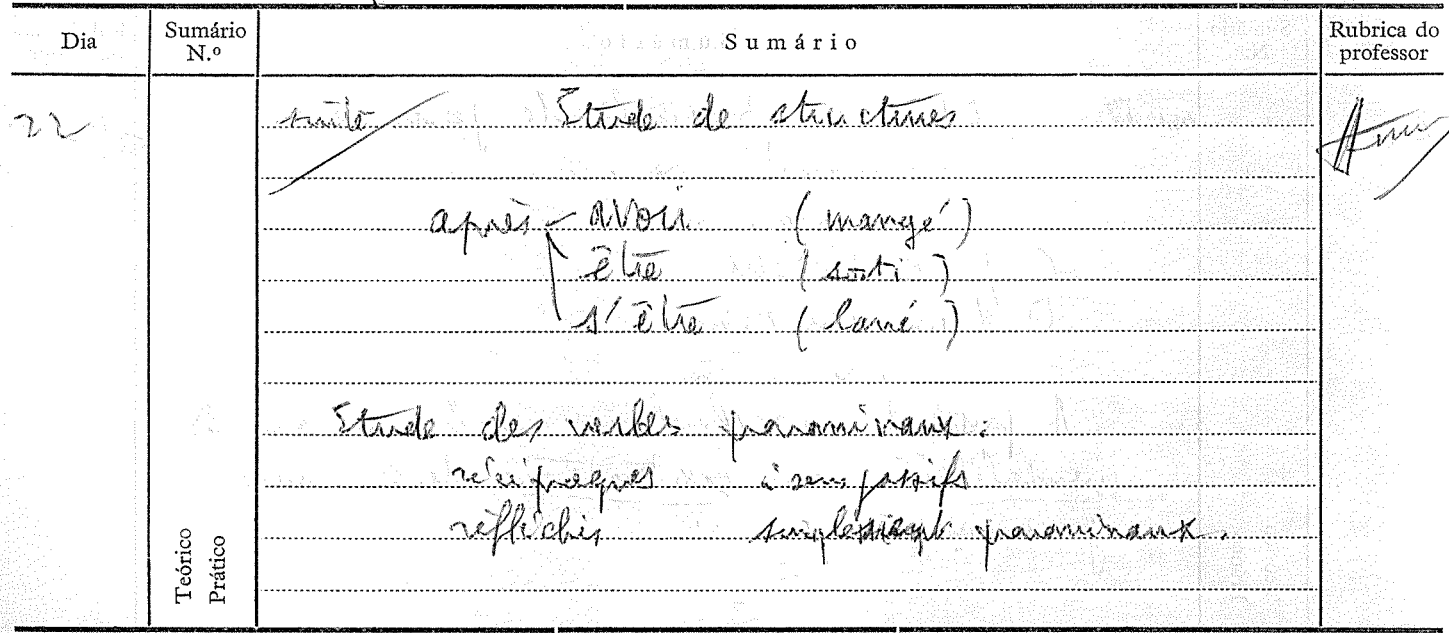 Dia Sumário N.º Sumário Rubrica do professor
22 suite Etude de structures
après avoir (mangé)
être (sorti)
s'être (lavé)
Etude des verbes pronominaux :
réciproques à sens passifs
réfléchis simplement pronominaux.
Teórico
Prático